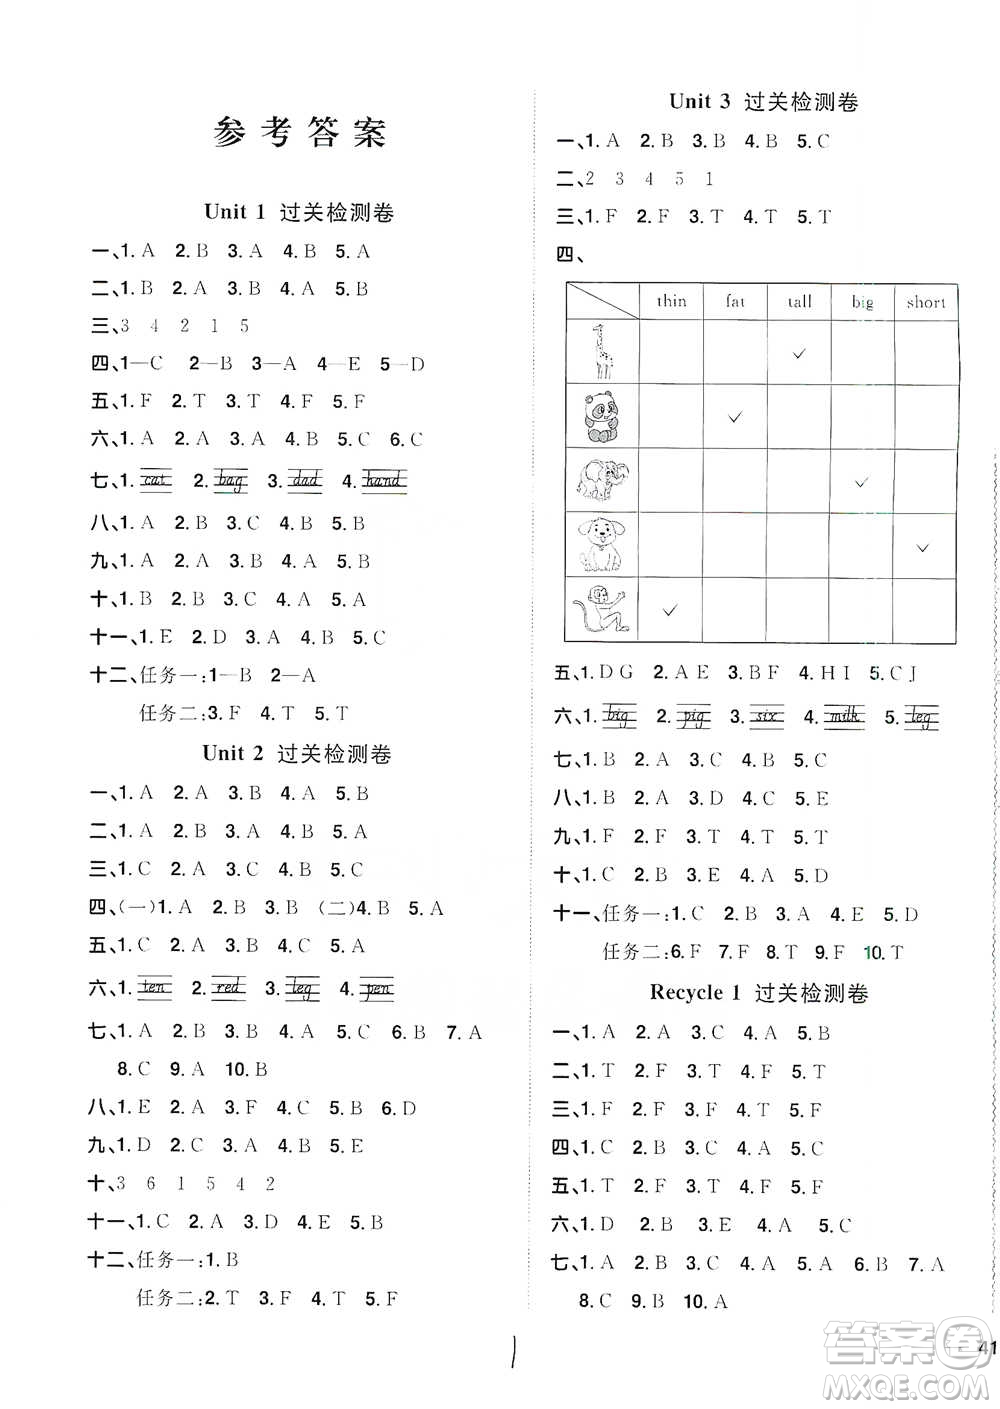 参考答案
Unit 1 过关检测卷
一、1. A 2. B 3. A 4. B 5. A
二、1. B 2. A 3. B 4. A 5. B
三、3 4 2 1 5
四、1—C 2—B 3—A 4—E 5—D
五、1. F 2. T 3. T 4. F 5. F
六、1. A 2. A 3. B 4. B 5. C 6. C
七、1. cat 2. bag 3. dad 4. hand
八、1. A 2. B 3. C 4. B 5. B
九、1. A 2. A 3. B 4. C 5. A
十、1. B 2. B 3. C 4. B 5. A
十一、1. E 2. D 3. A 4. B 5. C
十二、任务一:1—B 2—A
任务二:3. F 4. T 5. T
Unit 2 过关检测卷
一、1. A 2. A 3. B 4. B 5. A
二、1. A 2. A 3. B 4. B 5. A
三、1. C 2. A 3. C 4. B 5. C
四、(一)1. A 2. B 3. B (二)4. B 5. A
五、1. C 2. A 3. B 4. A 5. C
六、1. ten 2. red 3. leg 4. pen
七、1. A 2. B 3. B 4. C 5. B 6. B 7. A
8. C 9. A 10. B
八、1. E 2. A 3. F 4. C 5. B 6. D
九、1. D 2. C 3. A 4. B 5. E
十、3 6 1 5 4 2
十一、1. C 2. A 3. D 4. E 5. B
十二、任务一:1. B
任务二:2. T 3. F 4. T 5. F
Unit 3 过关检测卷
一、1. A 2. B 3. B 4. B 5. C
二、2 3 4 5 1
三、1. F 2. F 3. T 4. T 5. T
四、
thin fat tall big short
✓
✓
✓
✓
✓
五、1. D G 2. A E 3. B F 4. H I 5. C J
六、1. big 2. pig 3. six 4. milk 5. leg
七、1. B 2. A 3. C 4. B 5. C
八、1. B 2. A 3. D 4. C 5. E
九、1. F 2. F 3. T 4. T 5. T
十、1. C 2. B 3. E 4. A 5. D
十一、任务一:1. C 2. B 3. A 4. E 5. D
任务二:6. F 7. F 8. T 9. F 10. T
Recycle 1 过关检测卷
一、1. A 2. B 3. C 4. A 5. B
二、1. T 2. F 3. T 4. F 5. T
三、1. F 2. F 3. F 4. T 5. F
四、1. C 2. B 3. C 4. A 5. B
五、1. T 2. F 3. T 4. F 5. T
六、1. D 2. B 3. E 4. A 5. C
七、1. A 2. B 3. C 4. B 5. A 6. B 7. A
8. C 9. B 10. A
1
41
答案圈
MXQE.COM